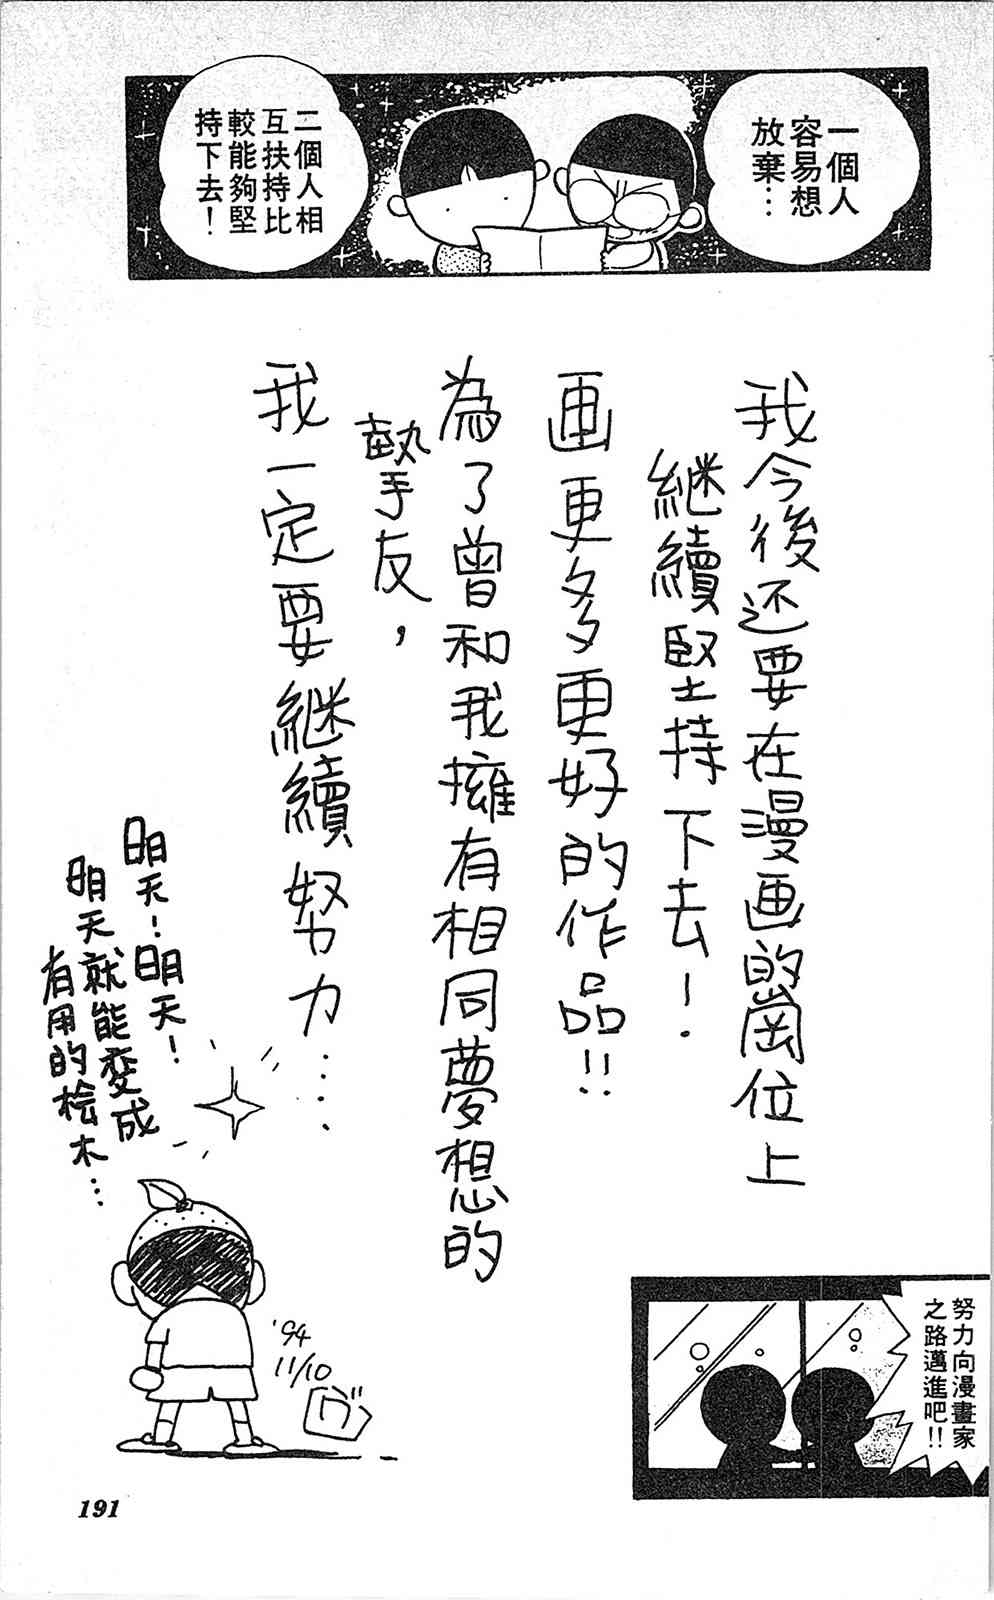 一個人
容易想
放棄…
二個人相
互扶持比
較能夠堅
持下去！
我今後还要在漫画的崗位上
継續堅持下去！.
画更多更好的作品!!
為了曾和我擁有相同夢想的
摯友，
我一定要継續努力……
明天！明天！
明天就能変成
有用的桧木…
'94
11/10
努力向漫畫家
之路邁進吧!!
191